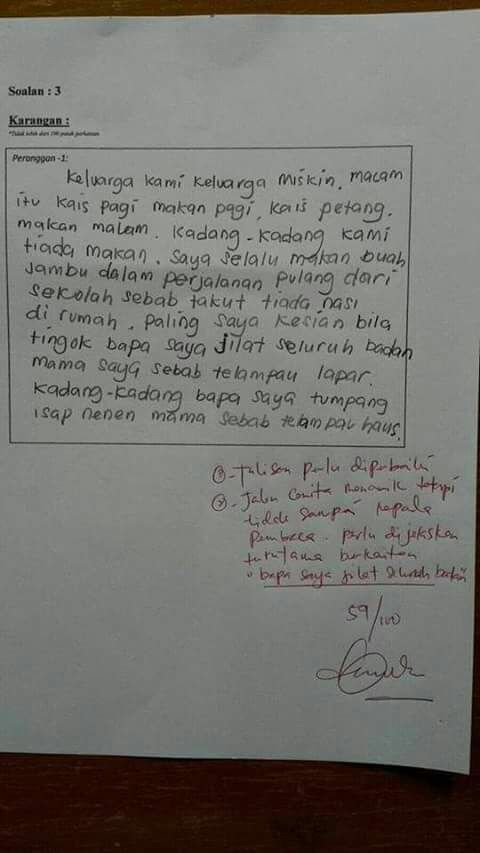 Soalan : 3
Karangan :
*Tidak lebih dari 100 patah perkataan
Perenggan -1:
Keluarga kami keluarga miskin, macam
itu kais pagi makan pagi, kais petang.
makan malam. Kadang-kadang kami
tiada makan. Saya selalu makan buah
jambu dalam perjalanan pulang dari
sekolah sebab takut tiada nasi
di rumah. paling saya kesian bila
tingok bapa saya jilat seluruh badan
mama saya sebab telampau lapar.
Kadang-kadang bapa saya tumpang
isap nenen mama sebab telampau haus.
- Tulisan perlu diperbaiki
- Jalan cerita menarik tetapi
tidak sampai kepada
pembaca. perlu dijelaskan
terutama berkaitan
"bapa saya jilat seluruh badan
59/100